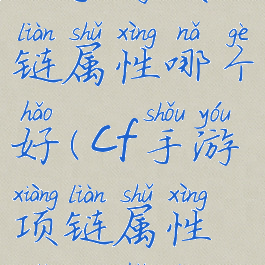 liàn shǔ xìng nǎ gè
链属性哪个
hǎo shǒu yóu
好(cf手游
xiàng liàn shǔ xìng
项链属性